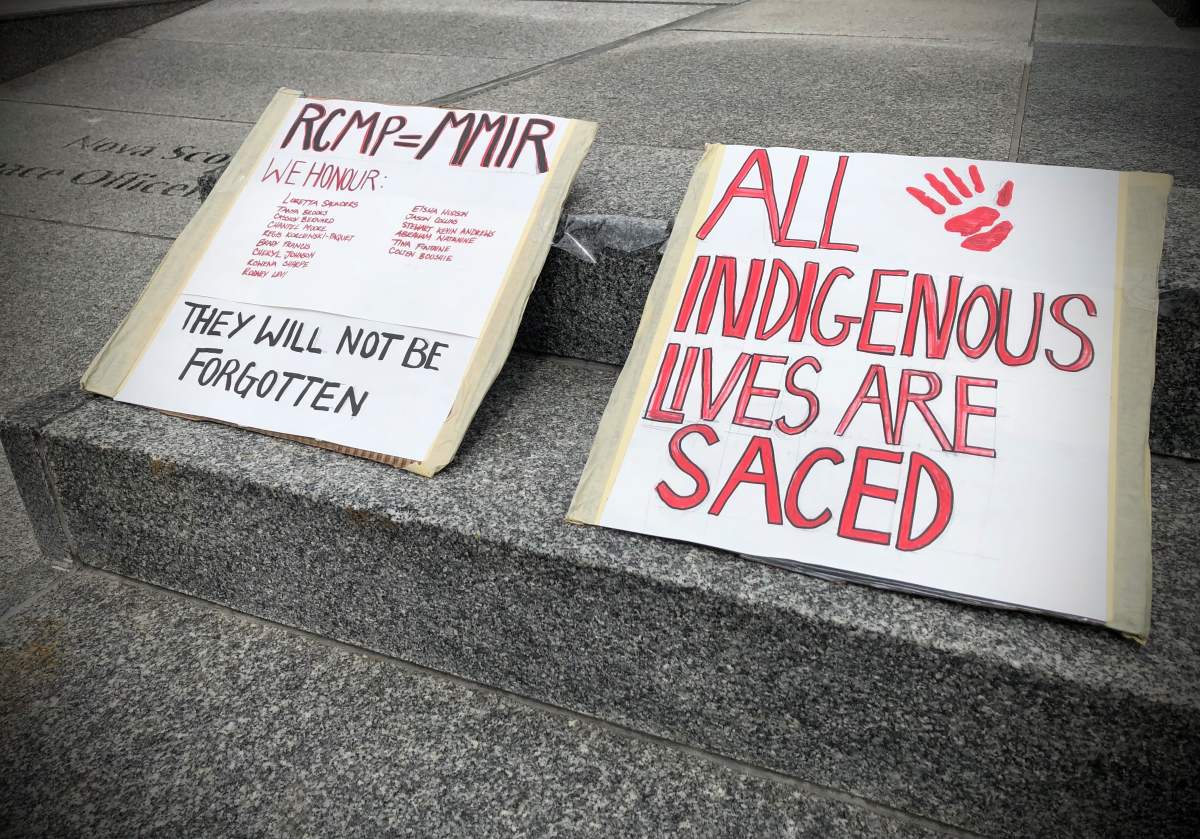 Nova Sco
eace Officer
RCMP=MMIR
WE HONOUR:
LORETTA SAUNDERS
TANYA BROOKS
CASSIDY BERNARD
CHANTEL MOORE
REGIS KORCHINSKI-PAQUET
BRADY FRANCIS
CHERYL JOHNSON
ROWENA SHARPE
RODNEY LEVI
EISHIA HUDSON
JASON COLLINS
STEWART KEVIN ANDREWS
ABRAHAM NATANINE
TINA FONTAINE
COLTEN BOUSHIE
THEY WILL NOT BE
FORGOTTEN
ALL
INDIGENOUS
LIVES ARE
SACED